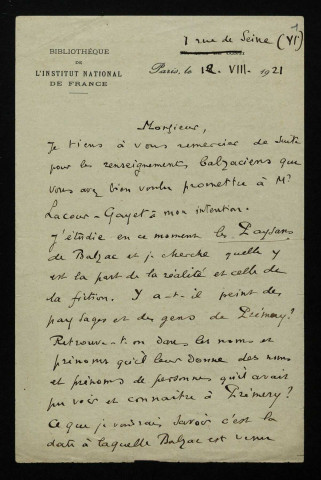 1 rue de Seine (VIe)
BIBLIOTHÈQUE
DE
L'INSTITUT NATIONAL
DE FRANCE
Paris, le 12 - VIII - 1921
Monsieur,
Je tiens à vous remercier de suite
pour les renseignements balzaciens que
vous avez bien voulu promettre à Mr
Lacour-Gayet à mon intention.
J'étudie en ce moment les Paysans
de Balzac et je cherche quelle y
est la part de la réalité et celle de
la fiction. Y a-t-il peint des
paysages et des gens de Prémery?
Retrouve-t-on dans les noms et
prénoms qu'il leur donne des noms
et prénoms de personnes qu'il avait
pu voir et connaître à Prémery?
Ce que je voudrais savoir c'est la
date à laquelle Balzac est venu